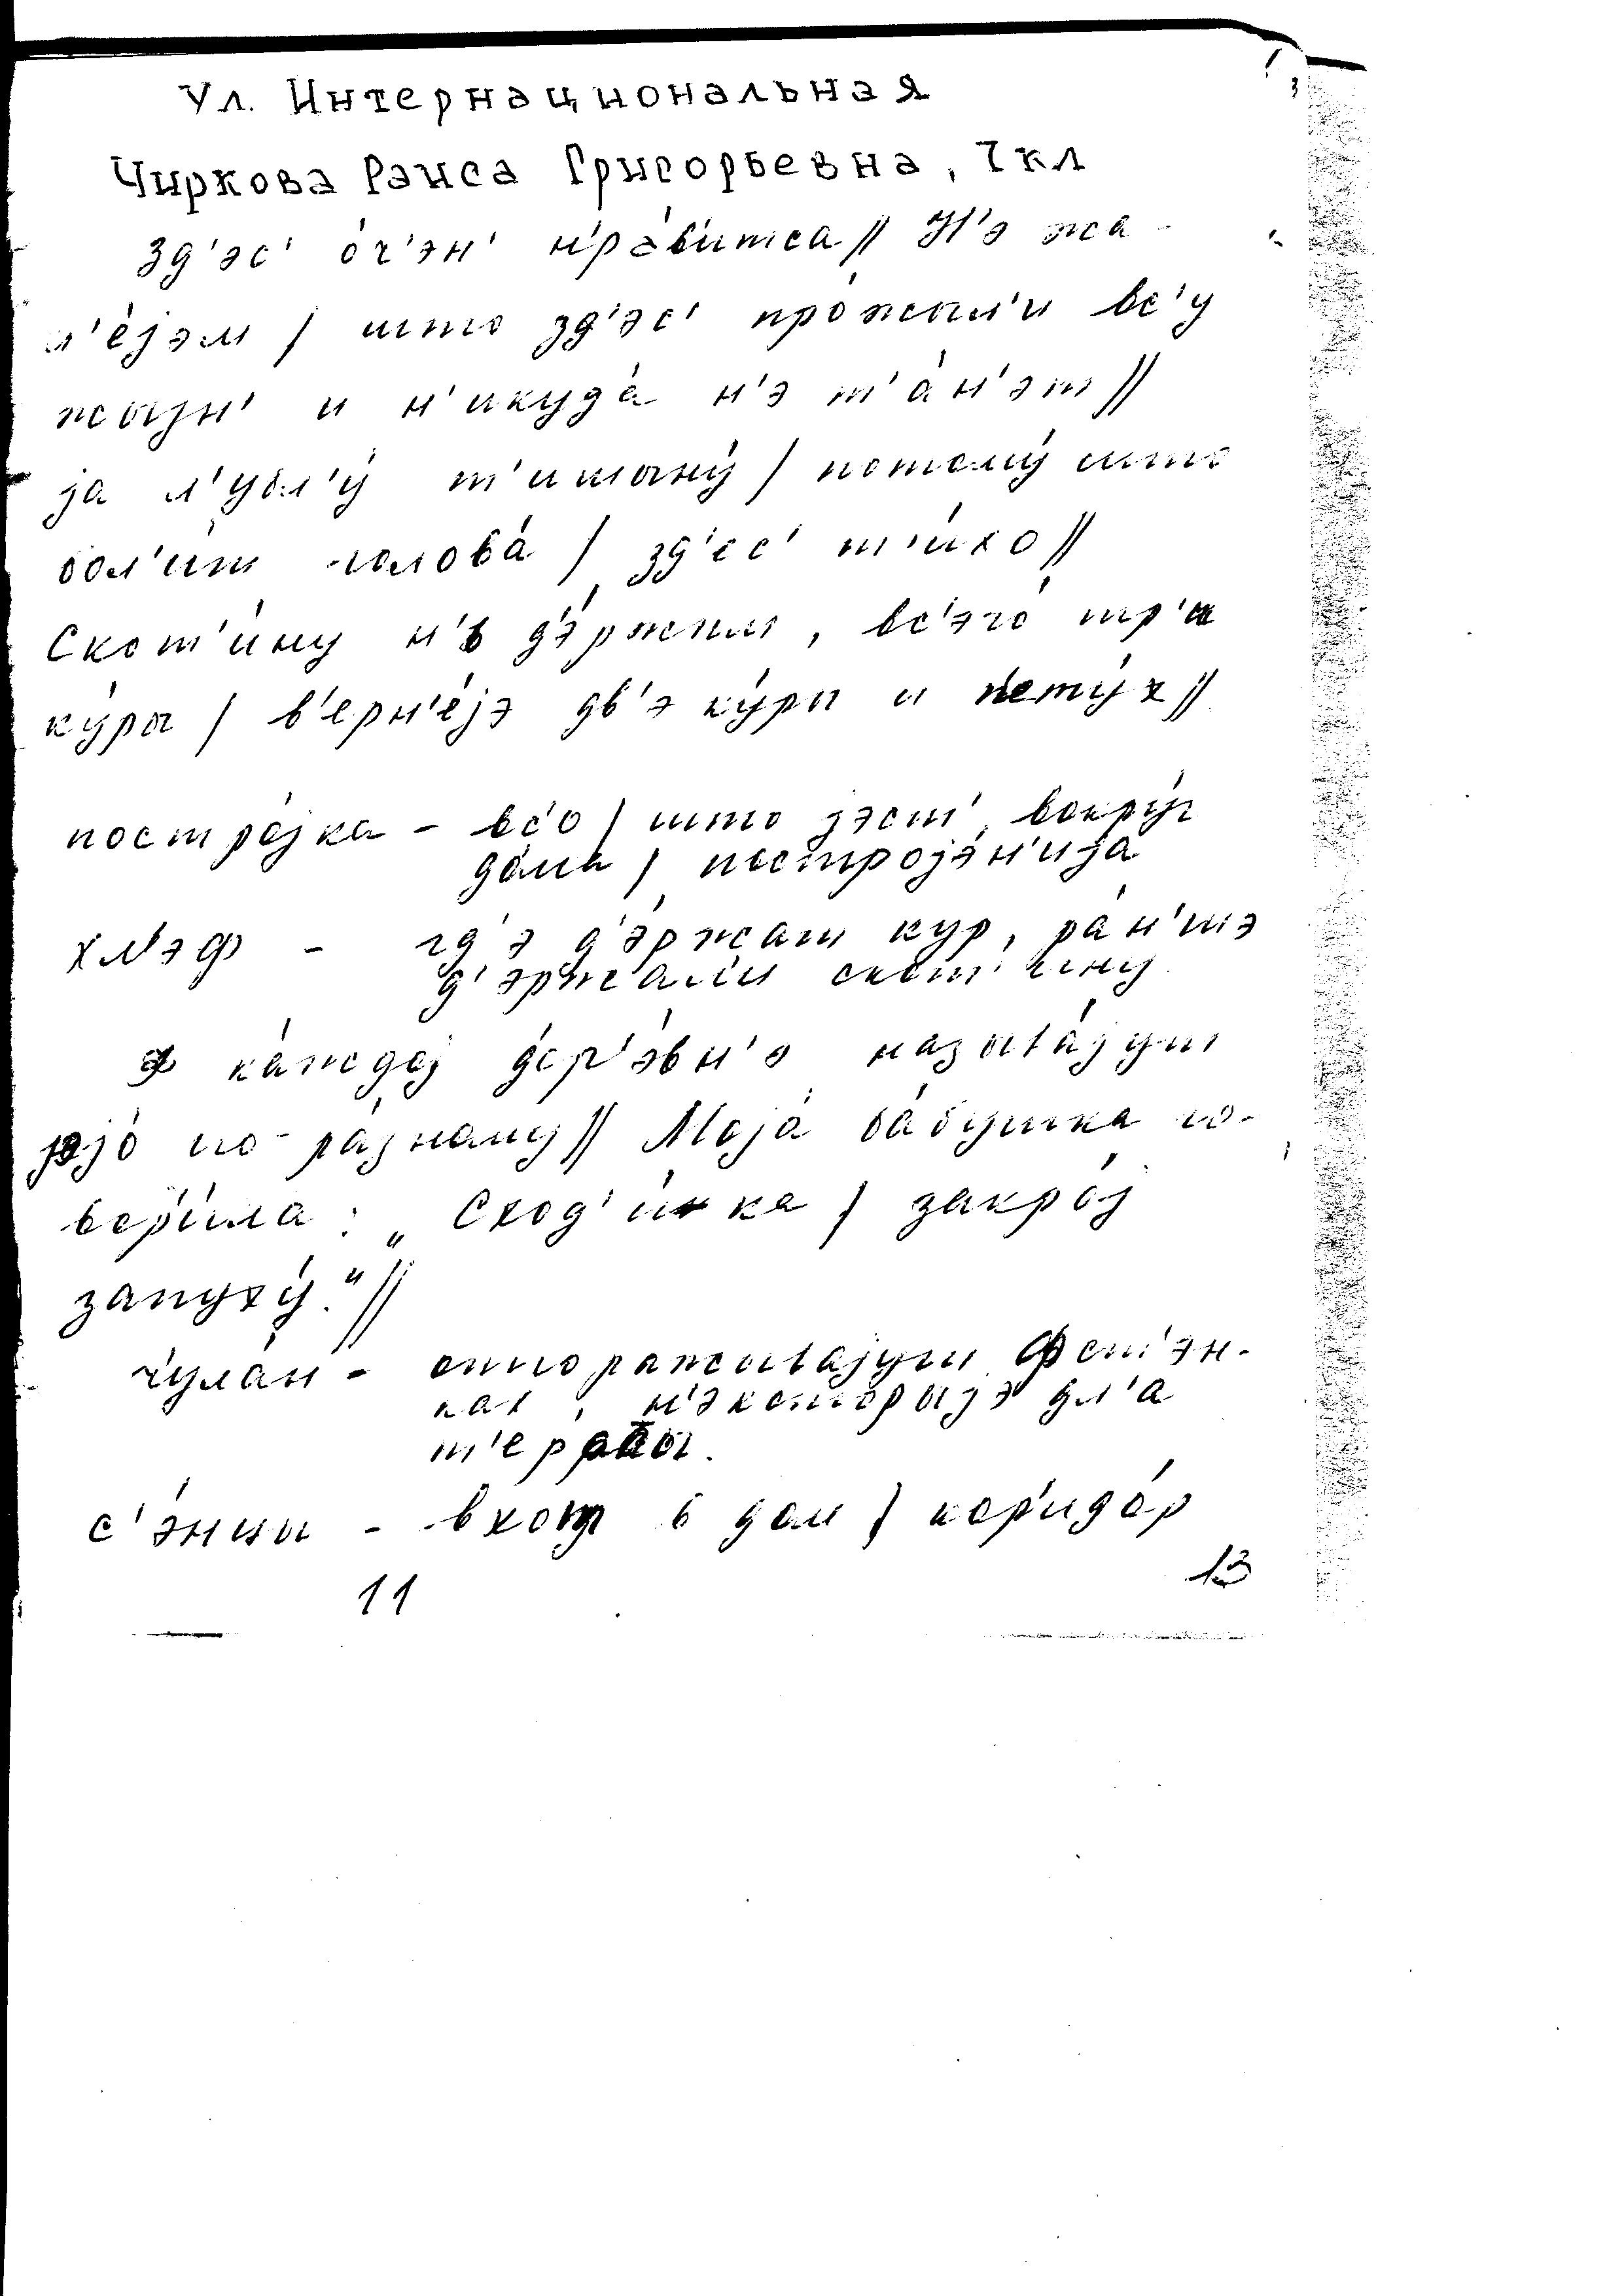 Ул. Интернациональная
Чиркова Раиса Григорьевна, 7 кл
Зд'эс' о́ч'эн' нра́витса // Н'э жа-
л'е́јэм / што зд'эс' про́жыл'и вс'у
жыз'н' и н'икуда́ н'э т'а́н'эт //
ја л'убл'у́ т'ишыну́ / потому́ што
бол'и́т голова́ / зд'ес' т'и́хо //
Скот'и́ну н'э д'э́ржым, вс'эго́ тр'и
ку́ры / в'ерн'е́јэ дв'э ку́ры и п'ету́х //
постро́јка - вс'о / што јэст' вокру́г
до́ма / построје́н'ија
хл'эф - гд'э д'э́ржат кур, ра́н'шэ
д'эржа́ли скот'и́ну
в ка́ждој д'ер'э́вн'э называ́јут
јэјо́ по-ра́зному // Моја́ ба́бушка го-
вори́ла: „Сход'и́-ка / закро́ј
запуху́." //
ч'ула́н - отгора́жывајут ф с'т'э́н-
ках, н'э́которыјэ дл'а
с'э́нцы - вход в дом / кор'идо́р
11
13